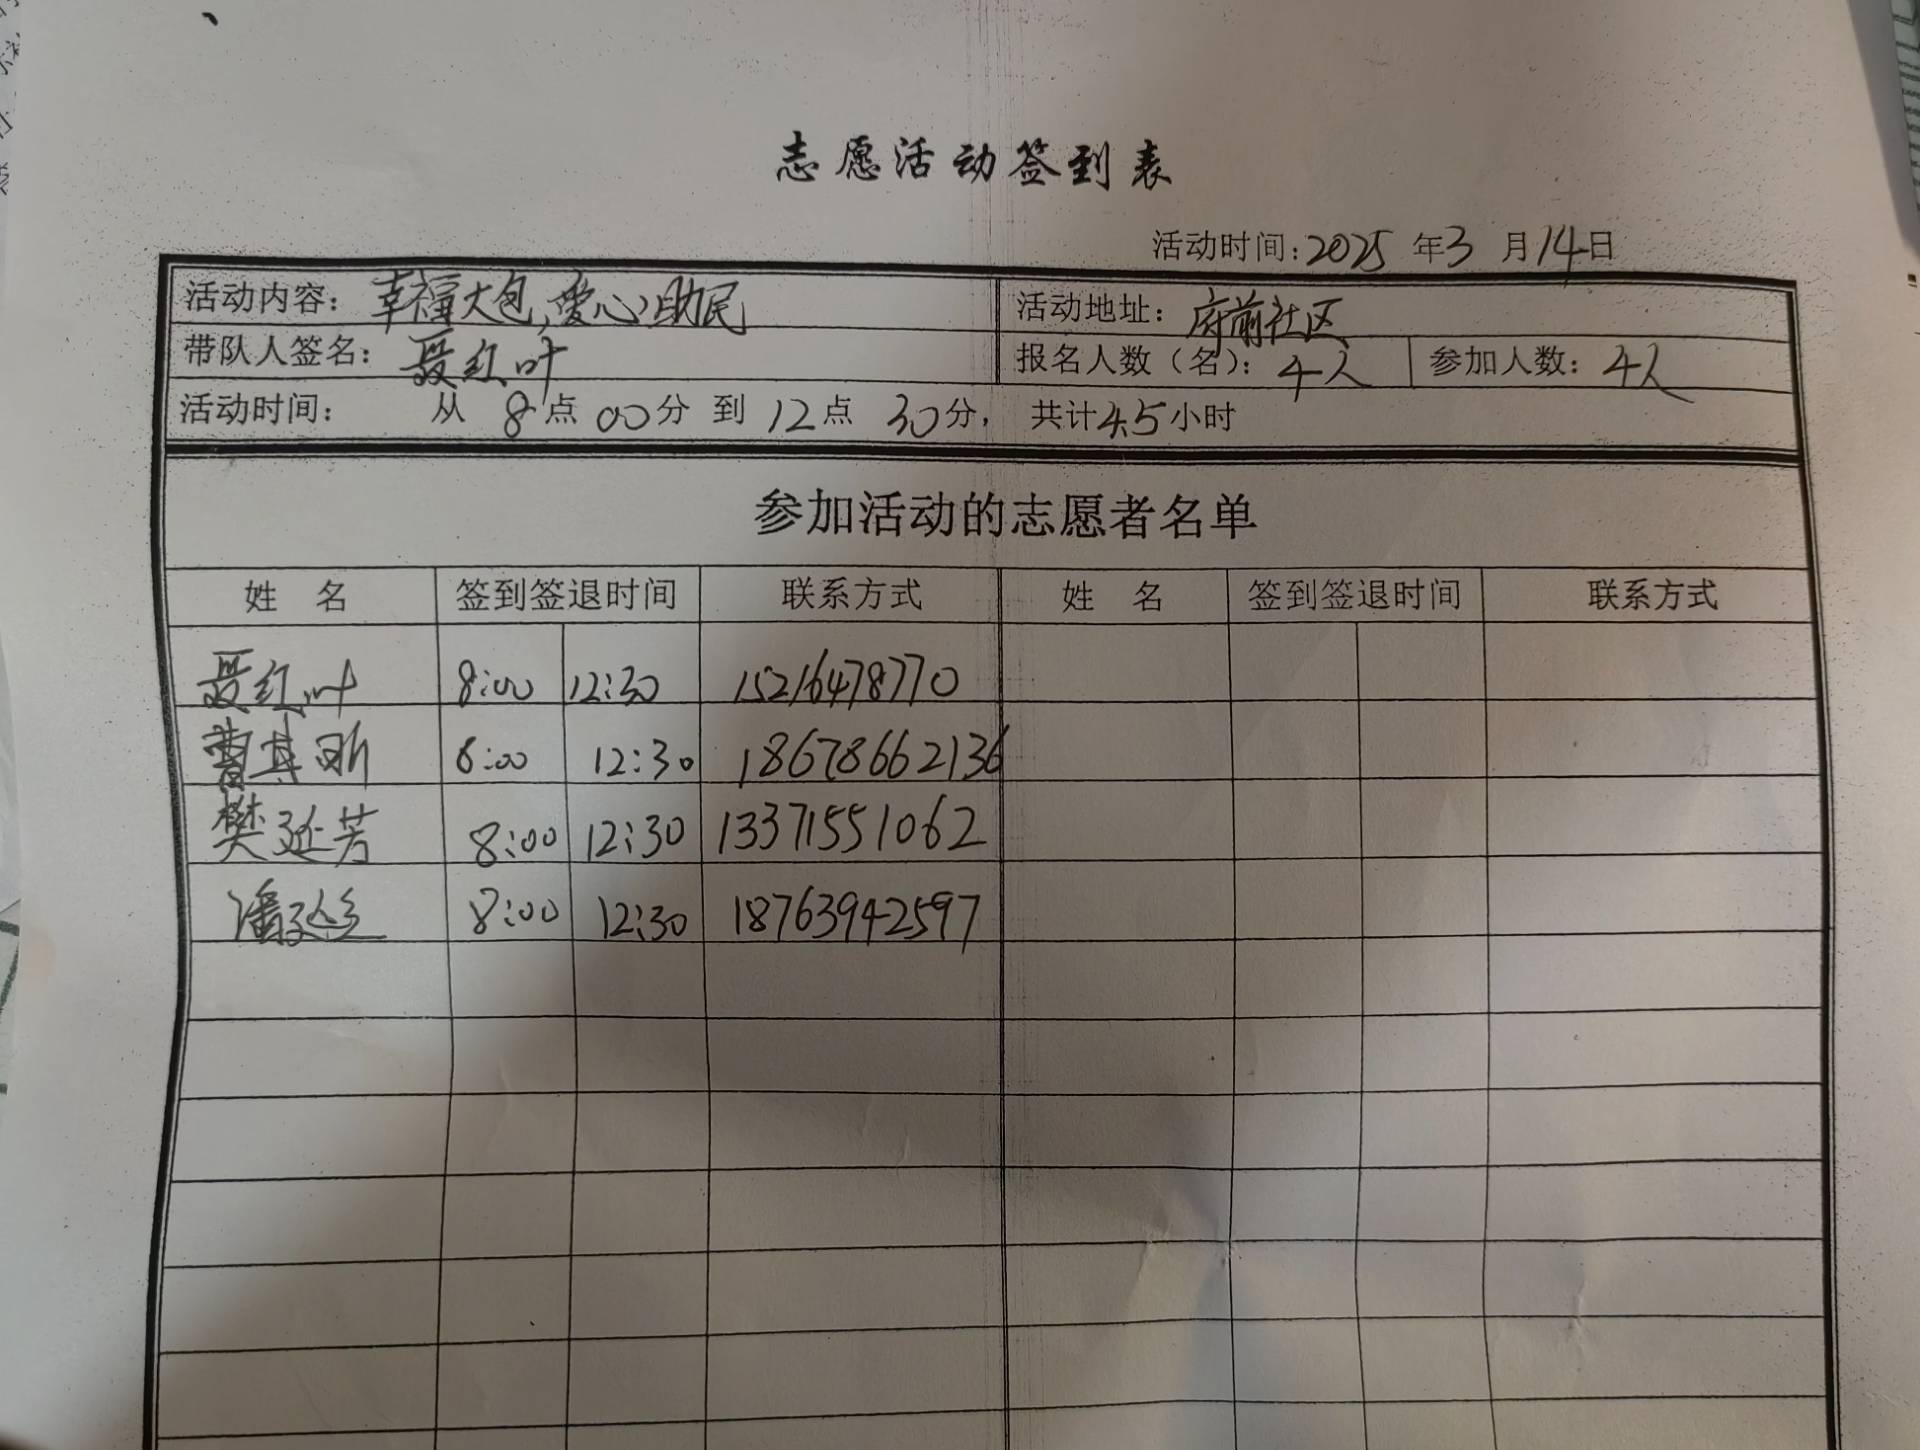 志愿活动签到表
活动时间:2025 年3 月14日
活动内容: 幸福大包,爱心助民 活动地址: 府前社区
带队人签名: 聂红叶 报名人数（名）: 4人 参加人数: 4人
活动时间: 从 8点 00分 到 12点 30分, 共计4.5小时
参加活动的志愿者名单
姓 名 签到签退时间 联系方式 姓 名 签到签退时间 联系方式
聂红叶 8:00 12:30 15216478770
曹其昕 8:00 12:30 18678662136
樊延芳 8:00 12:30 13371551062
潘 8:00 12:30 18763942597